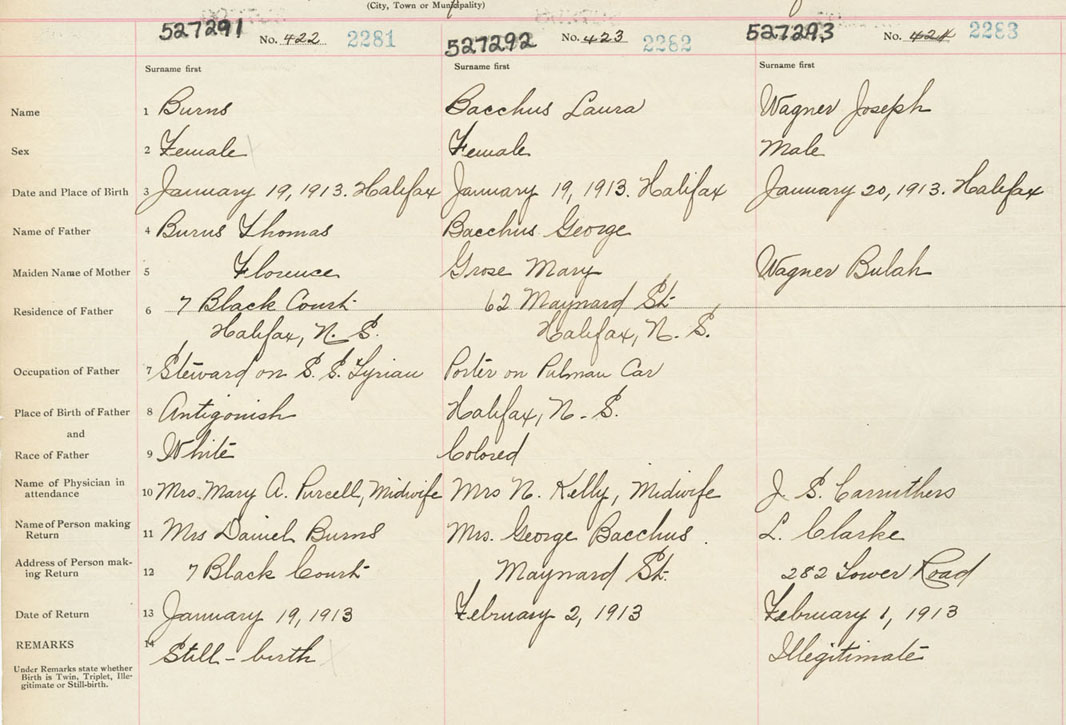 (City, Town or Municipality)
527291 No. 422 2281 527292 No. 423 2282 527293 No. 424 2283
Surname first Surname first Surname first
Name 1 Burns Bacchus Laura Wagner Joseph
Sex 2 Female Female Male
Date and Place of Birth 3 January 19, 1913. Halifax January 19, 1913. Halifax January 20, 1913. Halifax
Name of Father 4 Burns Thomas Bacchus George
Maiden Name of Mother 5 Florence Grose Mary Wagner Bulah
Residence of Father 6 7 Black Court 62 Maynard St.
Halifax, N. S. Halifax, N. S.
Occupation of Father 7 Steward on S. S. Tyrian Porter on Pulman Car
Place of Birth of Father 8 Antigonish Halifax, N. S.
and
Race of Father 9 White Colored
Name of Physician in
attendance 10 Mrs. Mary A. Purcell, Midwife Mrs N. Kelly, Midwife J. S. Carruthers
Name of Person making
Return 11 Mrs Daniel Burns Mrs. George Bacchus. L. Clarke
Address of Person mak-
ing Return 12 7 Black Court Maynard St. 282 Lower Road
Date of Return 13 January 19, 1913 February 2, 1913 February 1, 1913
REMARKS 14 Still-birth Illegitimate
Under Remarks state whether
Birth is Twin, Triplet, Ille-
gitimate or Still-birth.